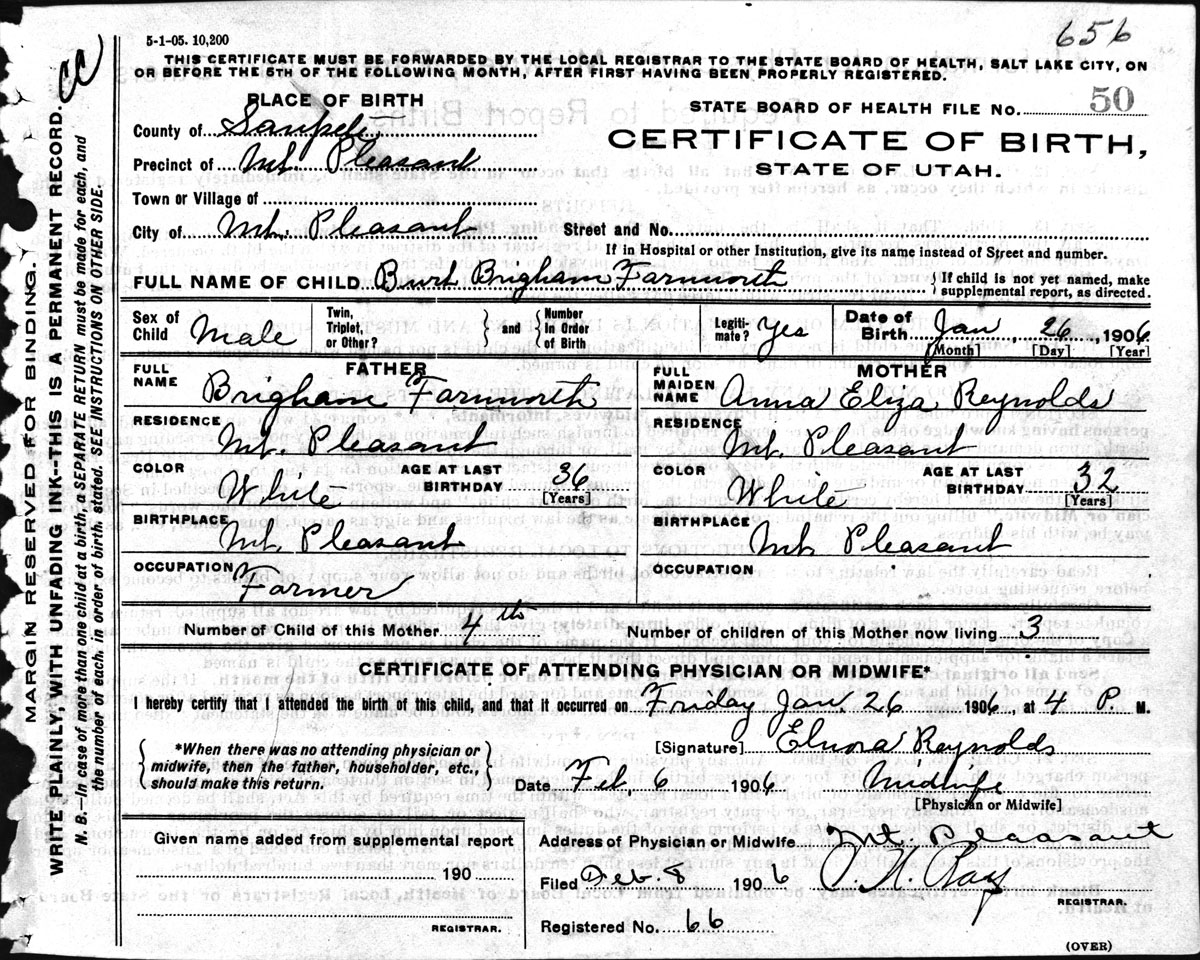 656
5-1-05. 10,200
THIS CERTIFICATE MUST BE FORWARDED BY THE LOCAL REGISTRAR TO THE STATE BOARD OF HEALTH, SALT LAKE CITY, ON
OR BEFORE THE 5TH OF THE FOLLOWING MONTH, AFTER FIRST HAVING BEEN PROPERLY REGISTERED.
PLACE OF BIRTH
STATE BOARD OF HEALTH FILE No. 50
County of Sanpete
CERTIFICATE OF BIRTH,
Precinct of Mt. Pleasant
STATE OF UTAH.
Town or Village of
City of Mt. Pleasant Street and No.
If in Hospital or other Institution, give its name instead of Street and number.
FULL NAME OF CHILD Burt Brigham Farnworth {If child is not yet named, make supplemental report, as directed.
Sex of Child Male Twin, Triplet, or Other? } and { Number in Order of Birth Legiti- mate? Yes Date of Birth Jan 26, 1906
[Month] [Day] [Year]
FATHER MOTHER
FULL NAME Brigham Farnworth FULL MAIDEN NAME Anna Eliza Reynolds
RESIDENCE Mt. Pleasant RESIDENCE Mt. Pleasant
COLOR White AGE AT LAST BIRTHDAY 36 [Years] COLOR White AGE AT LAST BIRTHDAY 32 [Years]
BIRTHPLACE Mt. Pleasant BIRTHPLACE Mt. Pleasant
OCCUPATION Farmer OCCUPATION
Number of Child of this Mother 4th Number of children of this Mother now living 3
CERTIFICATE OF ATTENDING PHYSICIAN OR MIDWIFE*
I hereby certify that I attended the birth of this child, and that it occurred on Friday Jan. 26 1906, at 4 P. M.
{*When there was no attending physician or
midwife, then the father, householder, etc.,
should make this return.}
[Signature] Elnora Reynolds
Date Feb. 6 1906 Midwife
[Physician or Midwife]
Given name added from supplemental report
190
REGISTRAR.
Address of Physician or Midwife Mt. Pleasant
Filed Feb. 8 1906
REGISTRAR.
Registered No. 66
(OVER)
MARGIN RESERVED FOR BINDING.
WRITE PLAINLY, WITH UNFADING INK--THIS IS A PERMANENT RECORD.
N. B.--In case of more than one child at a birth, a SEPARATE RETURN must be made for each, and
the number of each, in order of birth, stated. SEE INSTRUCTIONS ON OTHER SIDE.